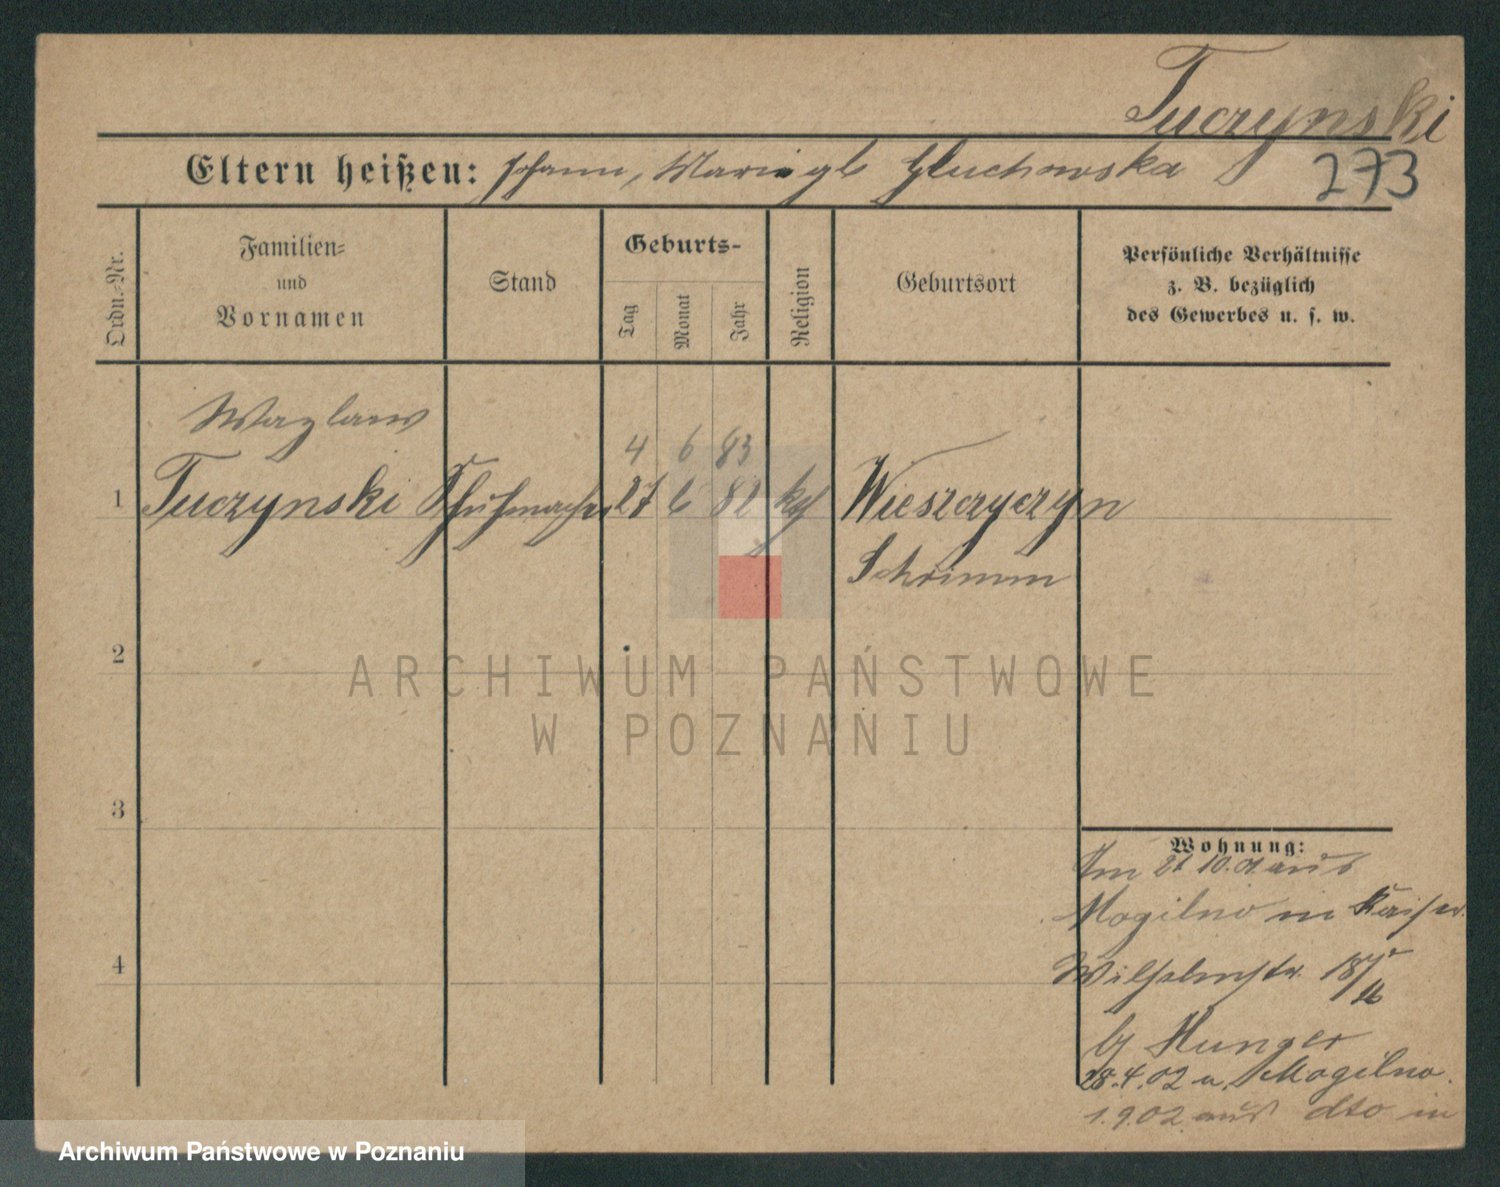 Tuczynski
273
Eltern heißen: Johann, Maria gb Gluchowska
Ordn.-Nr.
Familien-
und
Vornamen
Stand
Geburts-
Tag
Monat
Jahr
Religion
Geburtsort
Persönliche Verhältnisse
z. B. bezüglich
des Gewerbes u. s. w.
Wazlaw
4 6 83
1 Tuczynski Schuhmacher 27 6 82 kth Wieszczyczyn
Schrimm
2
3
4
Wohnung:
Im 21 10. 01 aus
Mogilno in Kaiser
Wilhelmstr. 18/
by Hunger
28.4.02 a. Mogilno.
1.9.02 aus dto in
ARCHIWUM PAŃSTWOWE
W POZNANIU
Archiwum Państwowe w Poznaniu